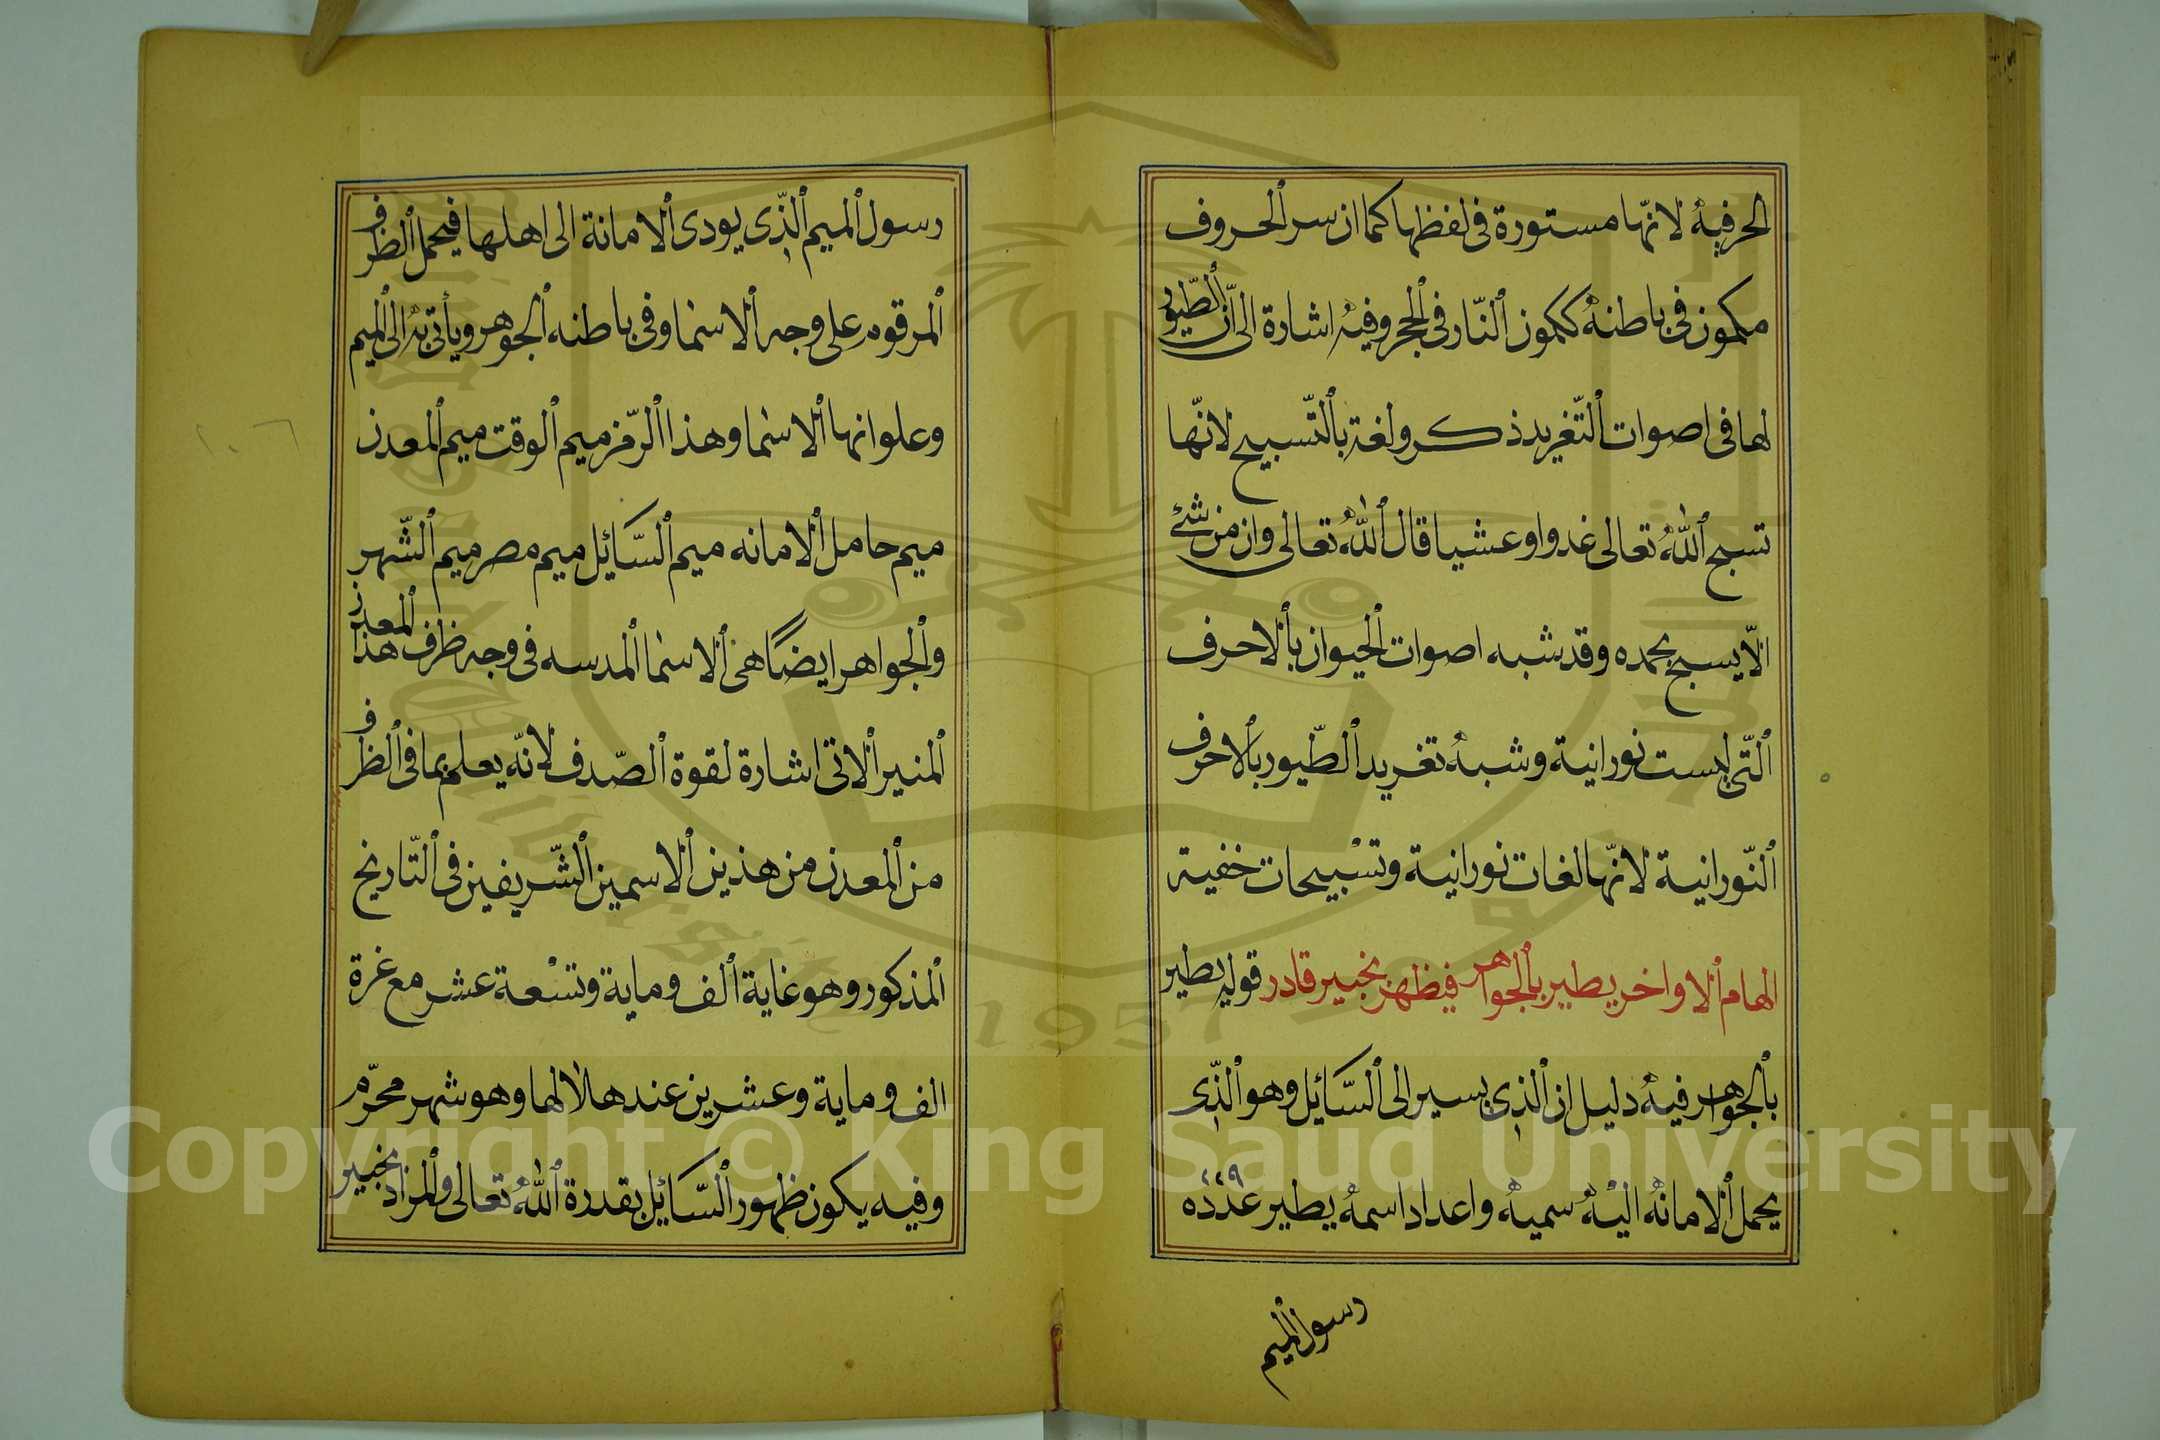 الحرفية لانّها مستورة فى لفظها كما ان سر الحروف
مكمون فى باطنه ككمون النّار فى الحجر وفيه اشارة الى انّ الطّيور
لها فى اصوات التّغريد ذكر ولغة بالتّسبيح لانّها
تسبح الله تعالى غدوا وعشيا قال الله تعالى وان من شئ
الّا يسبح بحمده وقد شبه اصوات الحيوان بالاحرف
التّى ليست نورانية وشبه تغريد الطّيور بالاحرف
النّورانية لانّها لغات نورانية وتسْبيحات خفية
الهام الاواخر يطير بالجواهر فيظهر بخبير قادر قوله يطير
بالجواهر فيه دليل ان الذى يسير الى السّائل وهو الذّى
يحمل الامانه اليْه سميه واعداد اسمه يطير عدده ٢٢٩
رسول الميم
رسول الميم الذّى يودى الامانة الى اهلها فيحمل الظرف
المرقوم على وجه الاسما وفى باطنه الجوهر ويأتى به الى الميم
وعلوانها الاسما وهذا الرّمز ميم الوقت ميم المعدن
ميم حامل الامانه ميم السّائل ميم مصر ميم الشّهر
والجواهر ايضًا هى الاسما المدسه فى وجه ظرف هذا المعدن
المنير الاتى اشارة لقوة الصّدف لانّه يعلم بما فى الظرف
من المعدن من هذين الاسمين الشّريفين فى التّاريخ
المذكور وهو غاية الف وماية وتسْعة عشر مع غرة
الف وماية وعشرين عند هلالها وهو شهر محرّم
وفيه يكون ظهور السّائل بقدرة الله تعالى والمراد بخبير
١٠٦
1957
Copyright © King Saud University